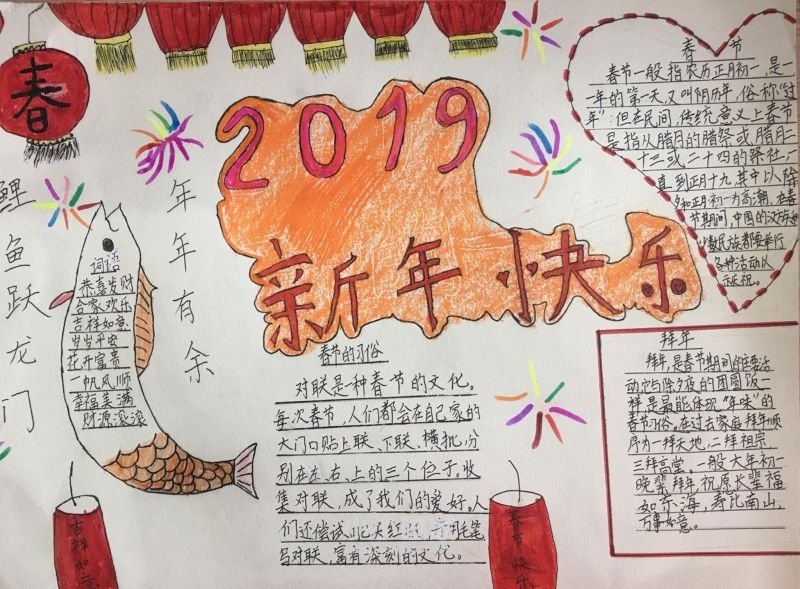 春
2019
新年快乐
鲤鱼跃龙门
年年有余
词语
恭喜发财
合家欢乐
吉祥如意
岁岁平安
花开富贵
一帆风顺
幸福美满
财源滚滚
春节的习俗
对联是一种春节的文化。
每次春节,人们都会在自己家的
大门口贴上联、下联、横批,分
别在左、右、上的三个位子。收
集对联,成了我们的爱好。人
们还尝试
写对联,富有深刻的文化。
春节
春节一般指农历正月初一,是一
年的第一天,又叫阴历年,俗称“过
年”;但在民间,传统意义上春节
是指从腊月的腊祭或腊月二
十三或二十四的祭社,
直到正月十九,其中以除
夕和正月初一为高潮。在春
节期间,中国的汉族和
少数民族都要举行
各种活动以
示庆祝。
拜年
拜年,是春节期间的主要活
动,它与除夕夜的团圆饭一
样,是最能体现“年味”的
春节习俗。在过去家庭拜年顺
序为一拜天地,二拜祖宗,
三拜高堂。一般大年初一
晚辈拜年祝愿长辈福
如东海,寿比南山,
万事如意。
吉祥如意
春节快乐